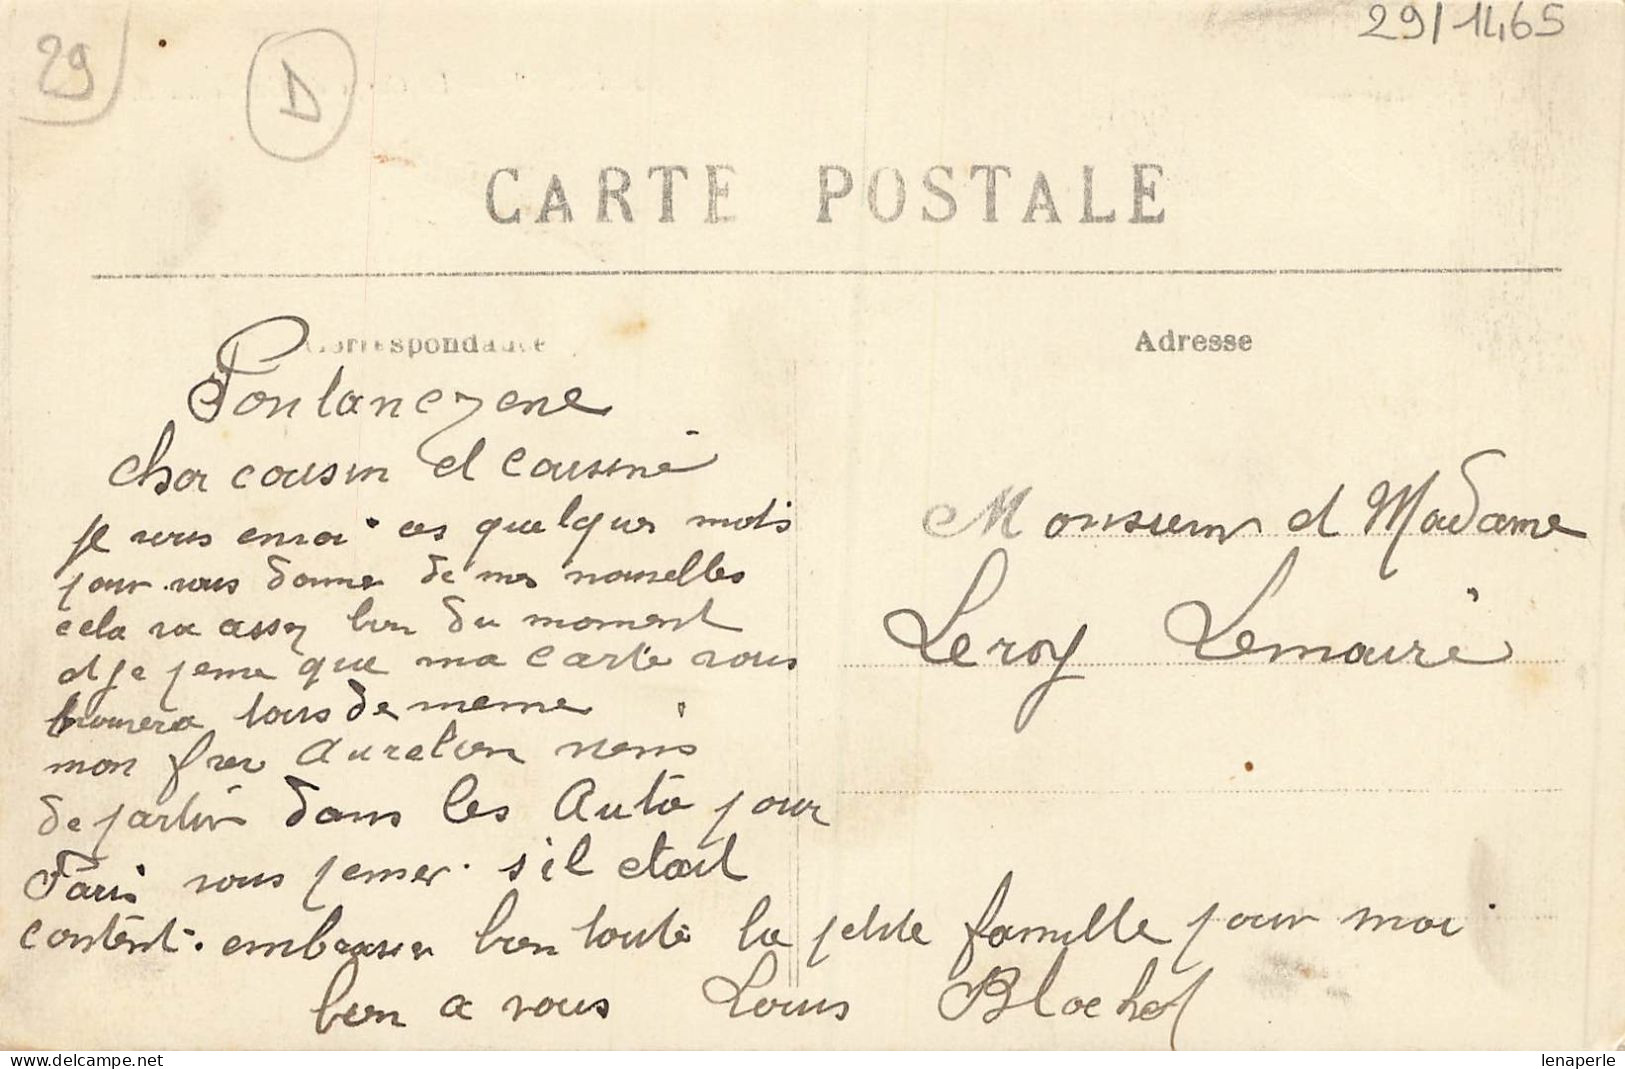 29/1465
29
D
CARTE POSTALE
Correspondance
Adresse
Foulanezene
cher cousin et cousine
je vous envoi ces quelques mots
pour vous donner de mes nouvelles
cela va assez bien du moment
et je pense que ma carte vous
trouvera tous de meme
mon frer Aurelien viens
de partir dans les Auto pour
Paris vous penser s'il etait
content. embrasser bien toute la petite famille pour moi
bien a vous Louis Blochet
Monsieur et Madame
Leroy Lemaire
lenaperle
www.delcampe.net